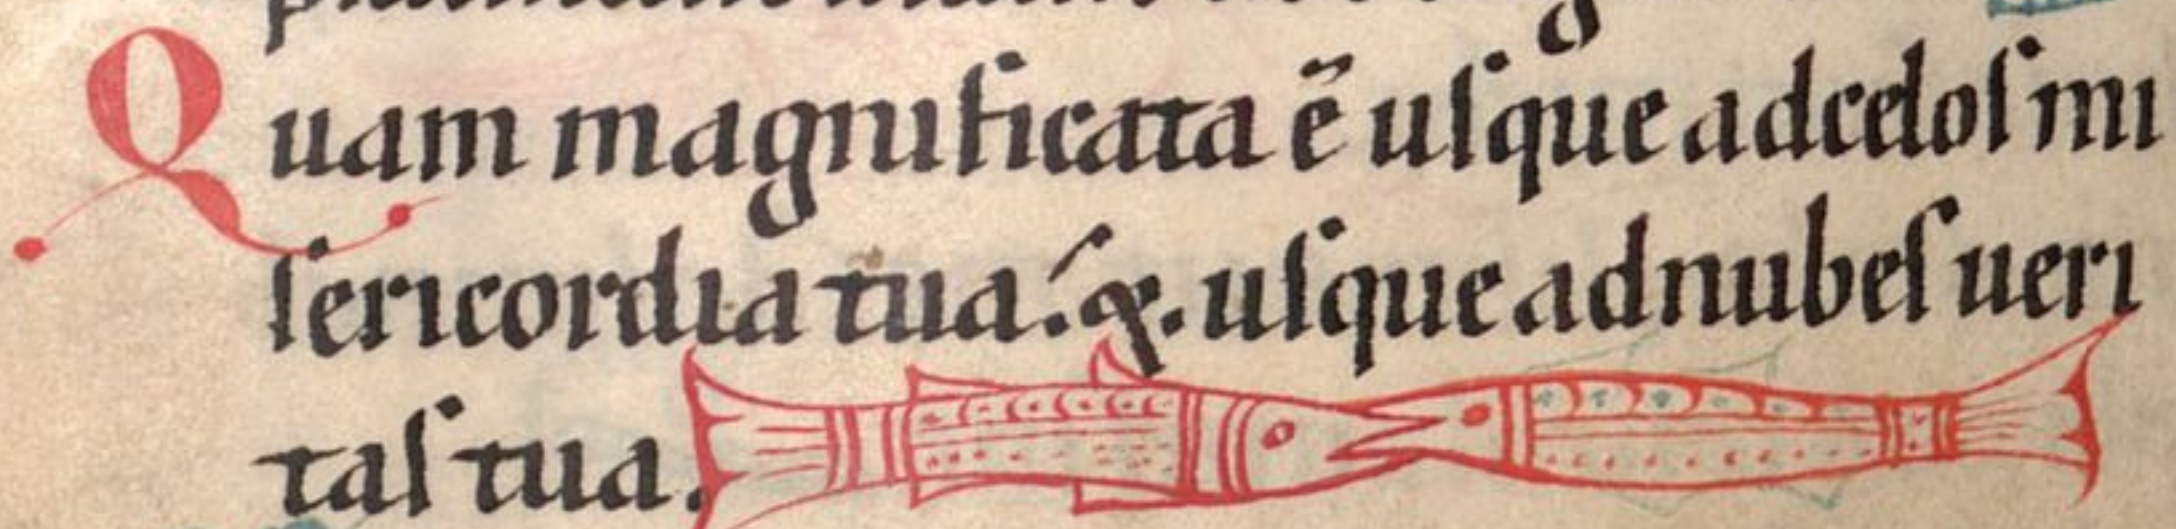 Quam magnificata ē uſque adceloſ mi
ſericordia tua. & uſque adnubeſ ueri
taſ tua.